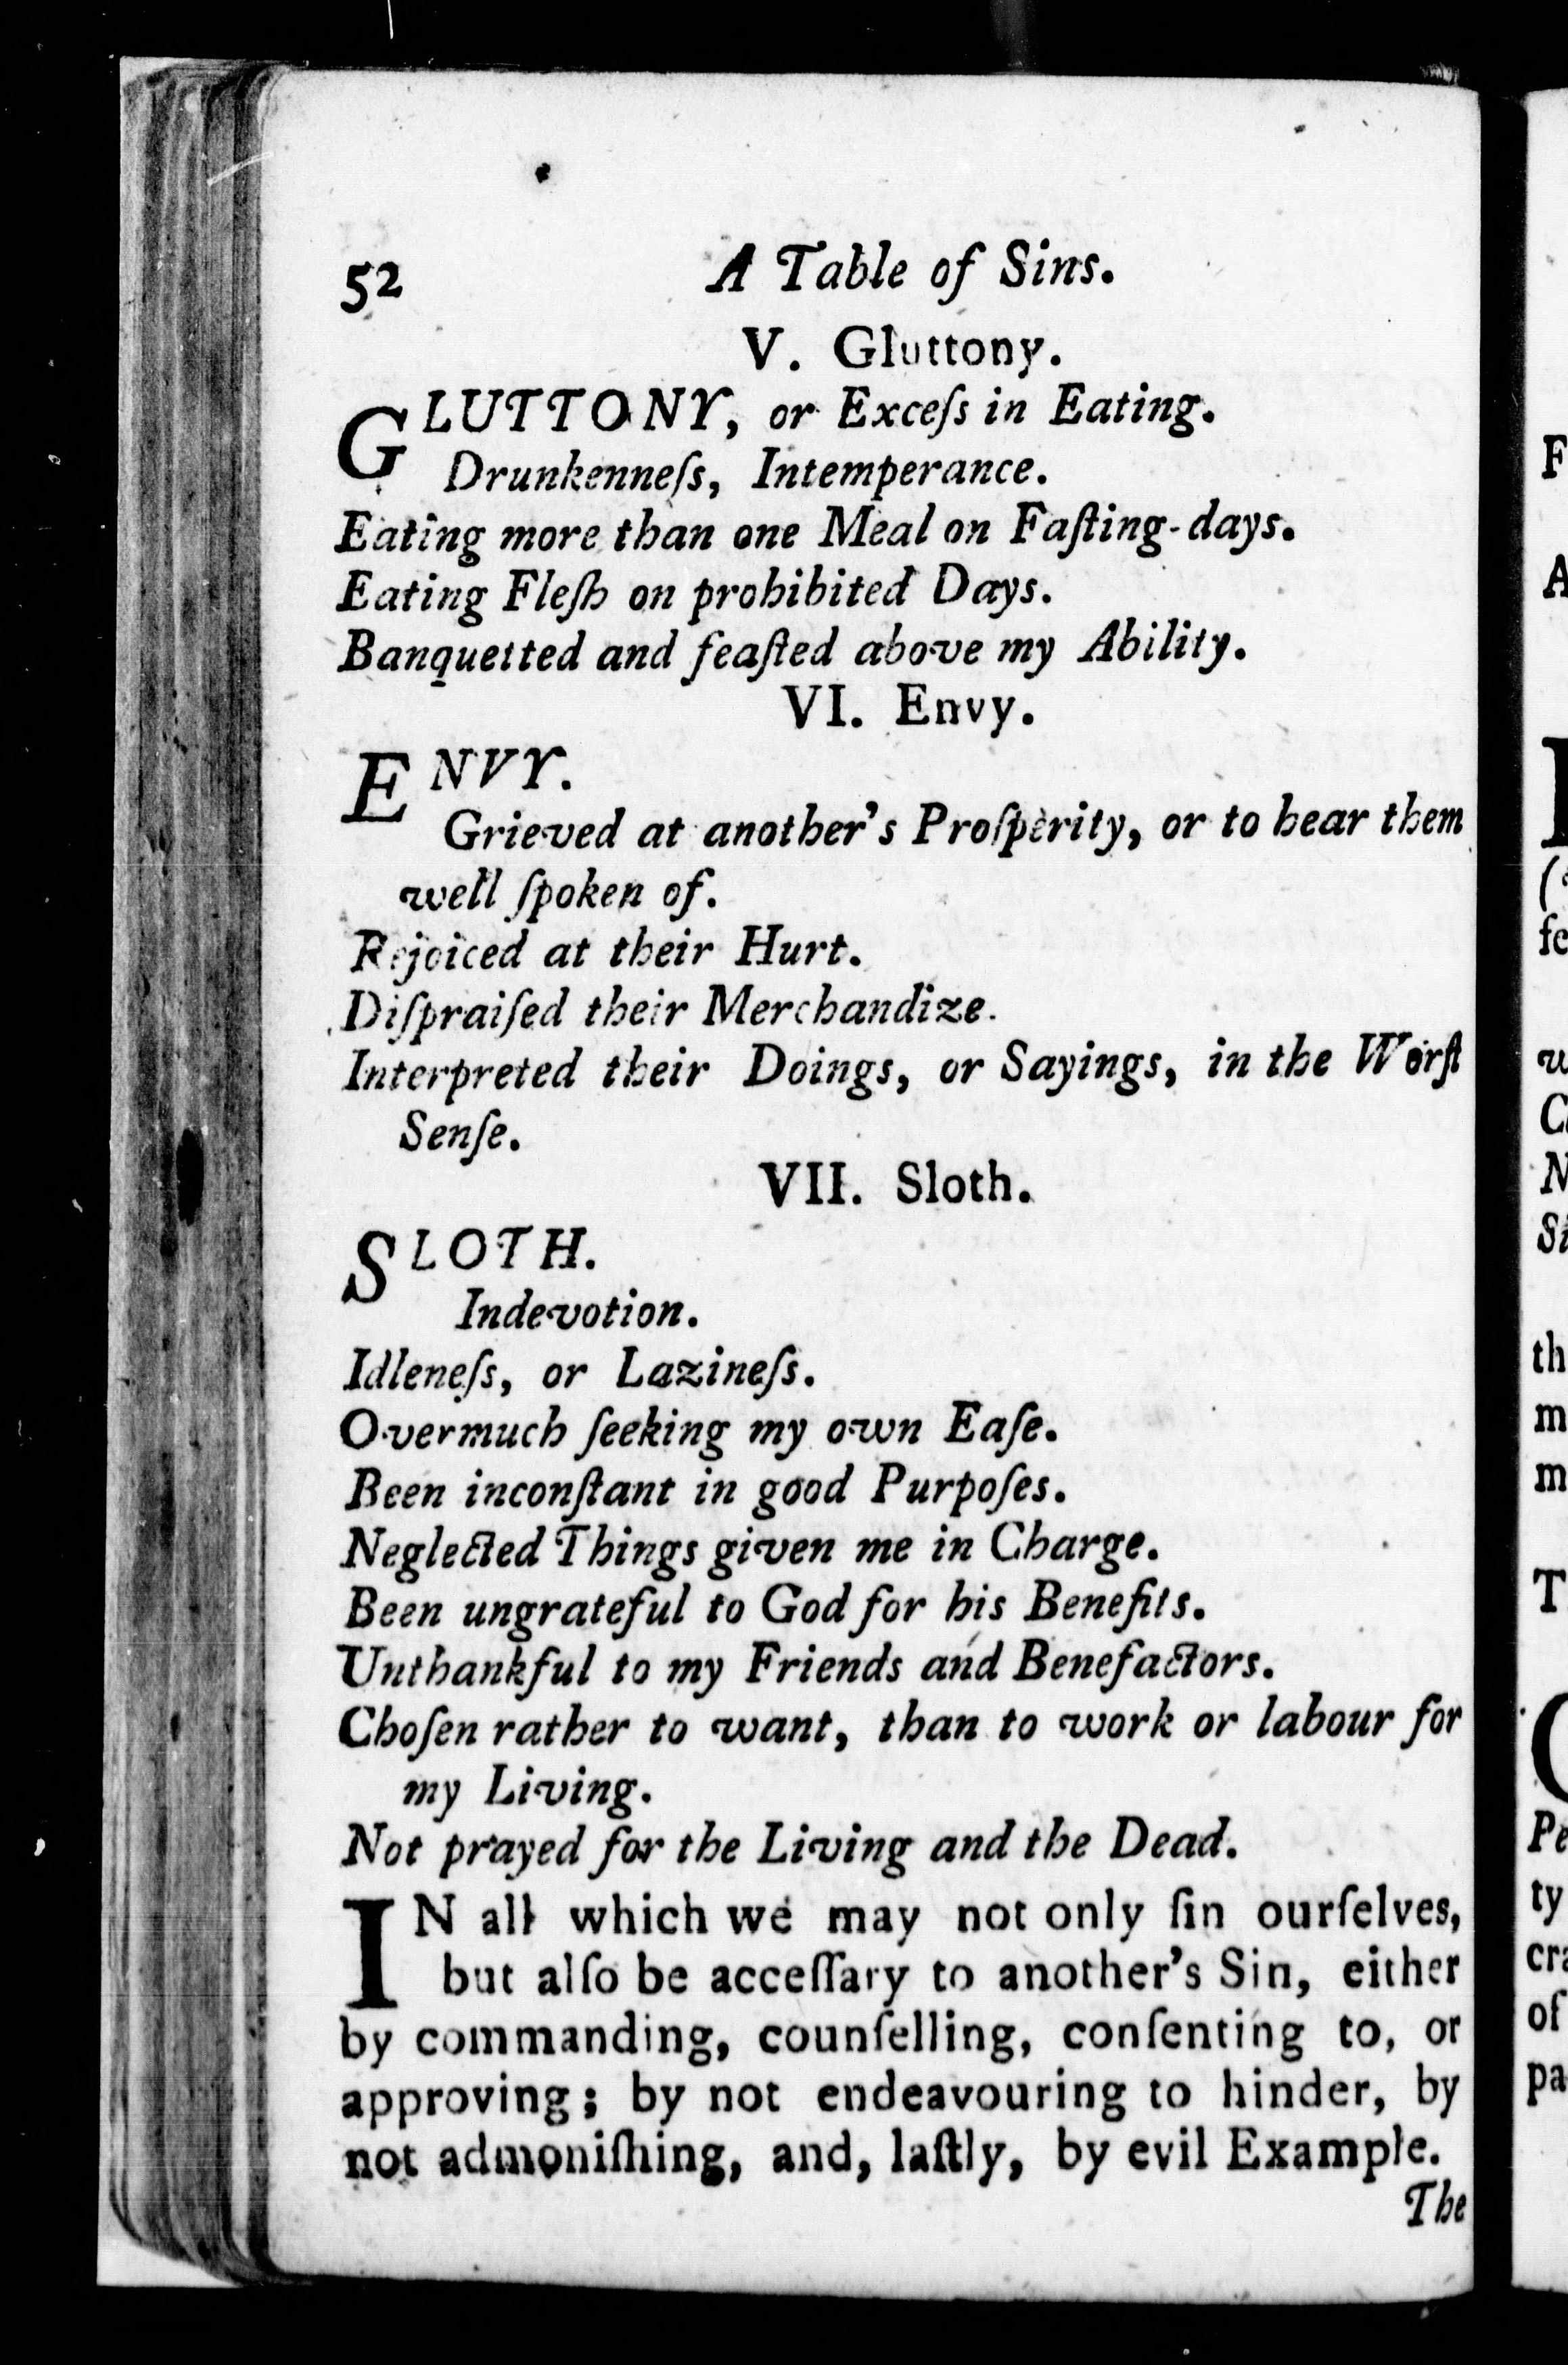 52 A Table of Sins.
V. Gluttony.
GLUTTONY, or Exceſs in Eating.
Drunkenneſs, Intemperance.
Eating more than one Meal on Faſting-days.
Eating Fleſh on prohibited Days.
Banquetted and feaſted above my Ability.
VI. Envy.
ENVY.
Grieved at another's Proſperity, or to hear them
well ſpoken of.
Rejoiced at their Hurt.
Diſpraiſed their Merchandize.
Interpreted their Doings, or Sayings, in the Worſt
Senſe.
VII. Sloth.
SLOTH.
Indevotion.
Idleneſs, or Lazineſs.
Overmuch ſeeking my own Eaſe.
Been inconſtant in good Purpoſes.
Neglected Things given me in Charge.
Been ungrateful to God for his Benefits.
Unthankful to my Friends and Benefactors.
Choſen rather to want, than to work or labour for
my Living.
Not prayed for the Living and the Dead.
IN all which we may not only ſin ourſelves,
but alſo be acceſſary to another's Sin, either
by commanding, counſelling, conſenting to, or
approving; by not endeavouring to hinder, by
not admoniſhing, and, laſtly, by evil Example.
The